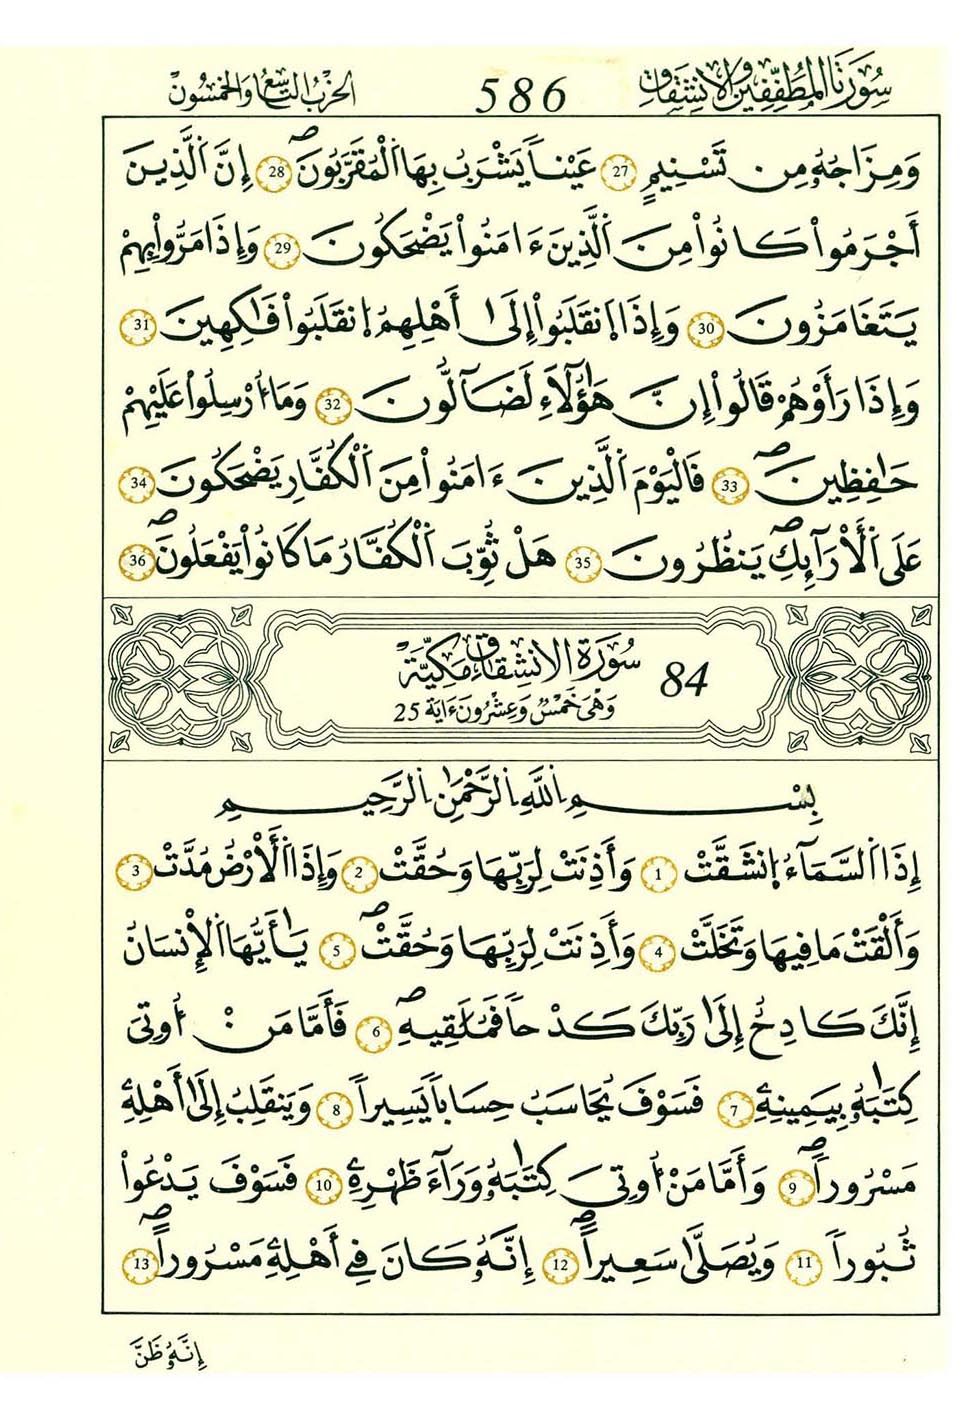 سُورَتَا الْمُطَفِّفِينَ وَالِانْشِقَاقِ 586 الحِزْبُ التَّاسِعُ وَالخَمْسُونَ
وَمِزَاجُهُۥ مِن تَسْنِيمٍ 27 عَيْناٗ يَشْرَبُ بِهَا اَ۬لْمُقَرَّبُونَۖ 28 إِنَّ اَ۬لذِينَ
أَجْرَمُواْ كَانُواْ مِنَ اَ۬لذِينَ ءَامَنُواْ يَضْحَكُونَ 29 وَإِذَا مَرُّواْ بِهِمْ
يَتَغَامَزُونَ 30 وَإِذَا اَ۪نقَلَبُواْ إِلَىٰ أَهْلِهِمُ اُ۪نقَلَبُواْ فَٰكِهِينَ 31
وَإِذَا رَأَوْهُمْ قَالُواْ إِنَّ هَٰٓؤُلَآءِ لَضَآلُّونَ 32 وَمَا أُرْسِلُواْ عَلَيْهِمْ
حَٰفِظِينَۖ 33 فَالْيَوْمَ اَ۬لذِينَ ءَامَنُواْ مِنَ اَ۬لْكُفّارِ يَضْحَكُونَ 34
عَلَى اَ۬لْأَرَآئِكِۖ يَنظُرُونَ 35 هَلْ ثُوِّبَ اَ۬لْكُفَّارُ مَا كَانُواْ يَفْعَلُونَۖ 36
84 سُورَةُ الِانْشِقَاقِ مَكِّيَّة
وَهْىَ خَمْسٌ وَعِشْرُونَ ءَايَة 25
بِسْمِ اِ۬للَّهِ اِ۬لرَّحْمَٰنِ اِ۬لرَّحِيمِ
إِذَا اَ۬لسَّمَآءُ اُ۪نشَقَّتْ 1 وَأَذِنَتْ لِرَبِّهَا وَحُقَّتْ 2 وَإِذَا اَ۬لْأَرْضُ مُدَّتْ 3
وَأَلْقَتْ مَا فِيهَا وَتَخَلَّتْ 4 وَأَذِنَتْ لِرَبِّهَا وَحُقَّتْۖ 5 يَٰأَيُّهَا اَ۬لْإِنسَانُ
إِنَّكَ كَادِحٌ إِلَىٰ رَبِّكَ كَدْحاٗ فَمُلَٰقِيهِۖ 6 فَأَمَّا مَنْ أُوتِىَ
كِتَٰبَهُۥ بِيَمِينِهِۦ 7 فَسَوْفَ يُحَاسَبُ حِسَاباٗ يَسِيراٗ 8 وَيَنقَلِبُ إِلَىٰ أَهْلِهِۦ
مَسْرُوراٗۖ 9 وَأَمَّا مَنْ أُوتِىَ كِتَٰبَهُۥ وَرَآءَ ظَهْرِهِۦ 10 فَسَوْفَ يَدْعُواْ
ثُبُوراٗ 11 وَيُصَلَّىٰ سَعِيراًۖ 12 إِنَّهُۥ كَانَ فِے أَهْلِهِۦ مَسْرُوراًۖ 13
إِنَّهُۥ ظَنَّ